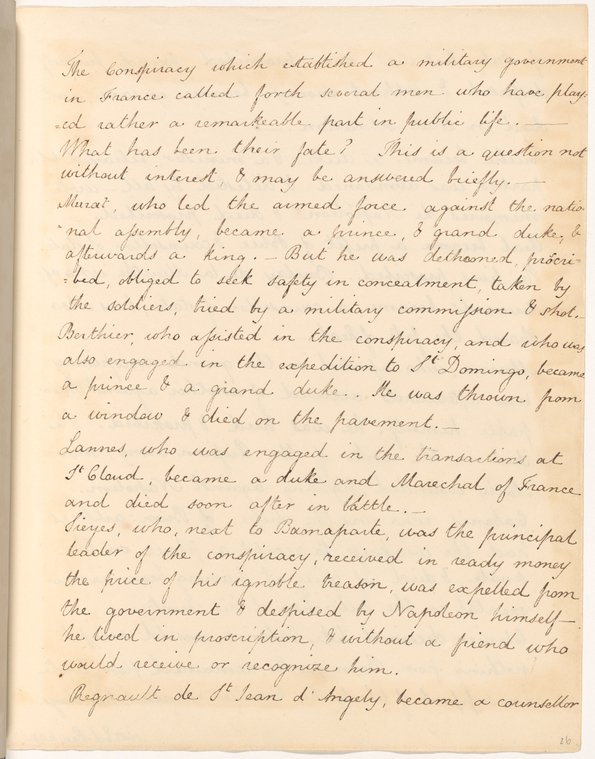 The Conspiracy which established a military government
in France called forth several men who have play-
=ed rather a remarkeable part in public life. —
What has been their fate? This is a question not
without interest, & may be answered briefly. —
Murat, who led the armed force against the natio-
-nal assembly, became a prince, & grand duke, &
afterwards a king. — But he was dethroned, proscri=
=bed, obliged to seek safety in concealment, taken by
the soldiers, tried by a military commission & shot. -
Berthier, who assisted in the conspiracy, and who was
also engaged in the expedition to St Domingo, became
a prince & a grand duke. . He was thrown from
a window & died on the pavement. —
Lannes, who was engaged in the transactions at
St Cloud, became a duke and Marechal of France
and died soon after in battle. —
Sieyes, who, next to Buonaparte, was the principal
leader of the conspiracy, received in ready money
the price of his ignoble treason, was expelled from
the government & despised by Napoleon himself
he lived in proscription, & without a friend who
would receive or recognize him.
Regnault de St Jean d'Angely, became a counsellor
26